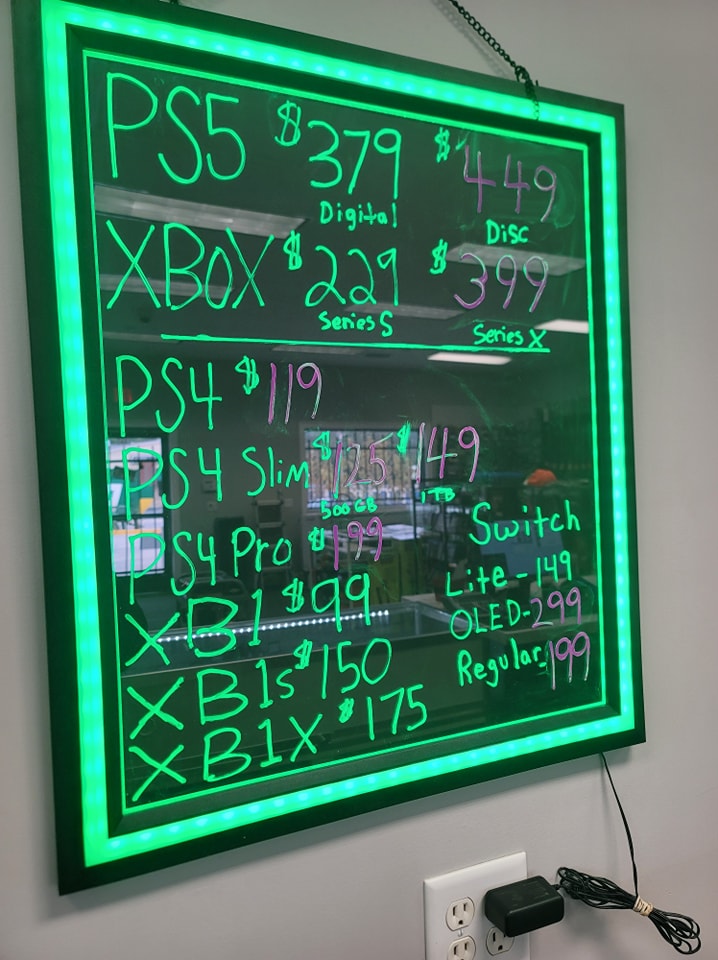 PS5 $379 $449
Digital Disc
XBOX $229 $399
Series S Series X
PS4 $119
PS4 Slim $125 $149
500GB 1TB
PS4 Pro $199
XB1 $99
XB1s $150
XB1X $175
Switch
Lite - 149
OLED - 299
Regular - 199